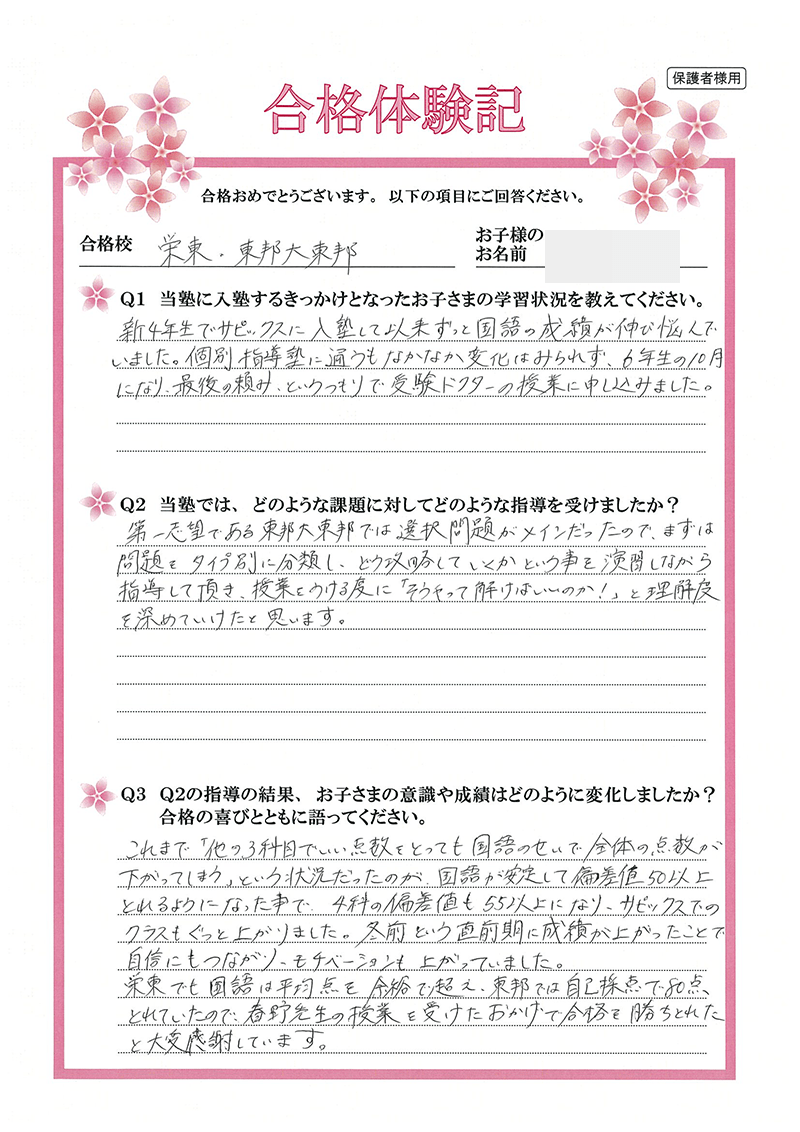 保護者様用
合格体験記
合格おめでとうございます。以下の項目にご回答ください。
合格校 栄東・東邦大東邦
お子様の
お名前
Q1 当塾に入塾するきっかけとなったお子さまの学習状況を教えてください。
新4年生でサピックスに入塾して以来ずっと国語の成績が伸び悩んで
いました。個別指導塾に通うもなかなか変化はみられず、6年生の10月
になり、最後の頼み、というつもりで受験ドクターの授業に申し込みました。
Q2 当塾では、どのような課題に対してどのような指導を受けましたか？
第一志望である東邦大東邦では選択問題がメインだったので、まずは
問題をタイプ別に分類し、どう攻略していくかという事を演習しながら
指導して頂き、授業をうける度に「そうやって解けばいいのか!」と理解度
を深めていけたと思います。
Q3 Q2の指導の結果、お子さまの意識や成績はどのように変化しましたか？
合格の喜びとともに語ってください。
これまで「他の3科目でいい点数をとっても国語のせいで全体の点数が
下がってしまう」という状況だったのが、国語が安定して偏差値50以上
とれるようになった事で、4科の偏差値も55以上になり、サピックスでの
クラスもぐっと上がりました。冬前という直前期に成績が上がったことで
自信にもつながり、モチベーションも上がっていました。
栄東でも国語は平均点を余裕で超え、東邦では自己採点で80点、
とれていたので、春野先生の授業を受けたおかげで合格を勝ちとれた
と大変感謝しています。